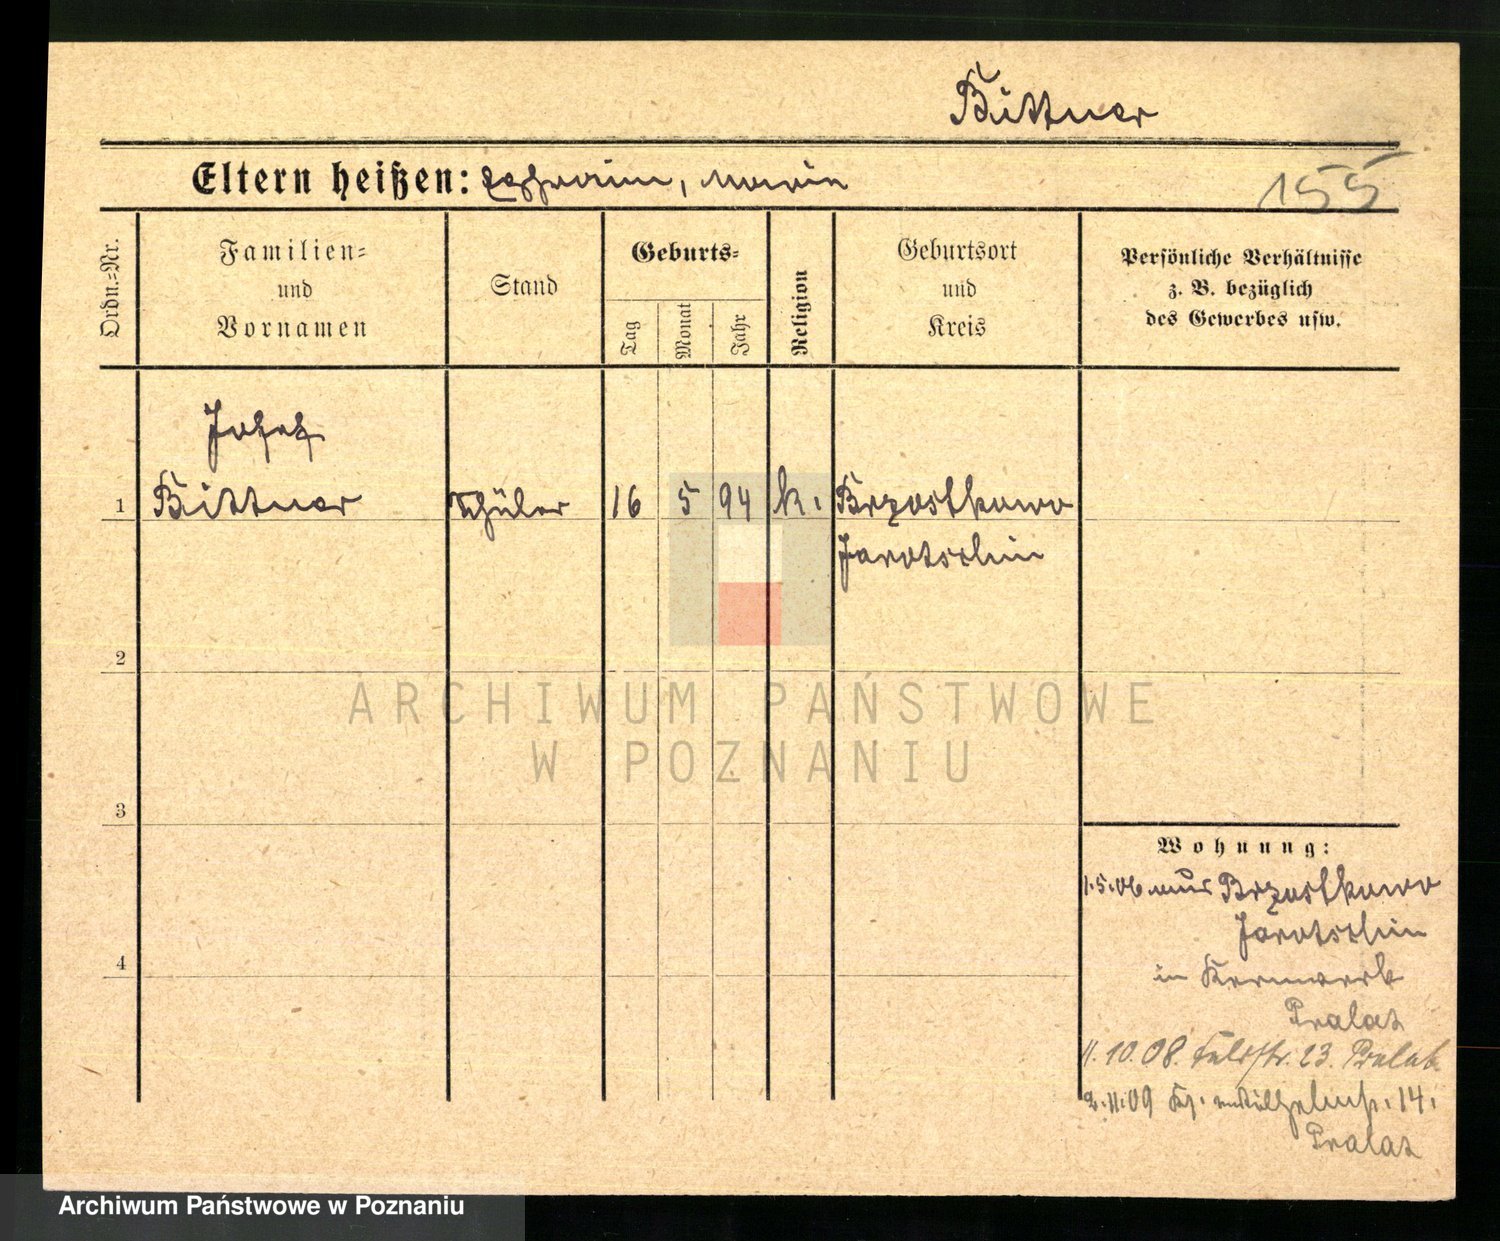 Bittner
Eltern heißen: Ephraim, Maria
155
Ordn.=Nr.
Familien=
und
Vornamen
Stand
Geburts=
Tag
Monat
Jahr
Religion
Geburtsort
und
Kreis
Persönliche Verhältnisse
z. B. bezüglich
des Gewerbes usw.
Josef
1 Bittner Schüler 16 5 94 k. Brzostkowo
Jarotschin
2
ARCHIWUM PAŃSTWOWE
W POZNANIU
3
Wohnung:
1.5.06 aus Brzostkowo
Jarotschin
in Kernwerk
Pralat
11.10.08. Feldstr. 23. Pralat
4
2.11.09 Wilhelmstr. 14.
Pralat
Archiwum Państwowe w Poznaniu